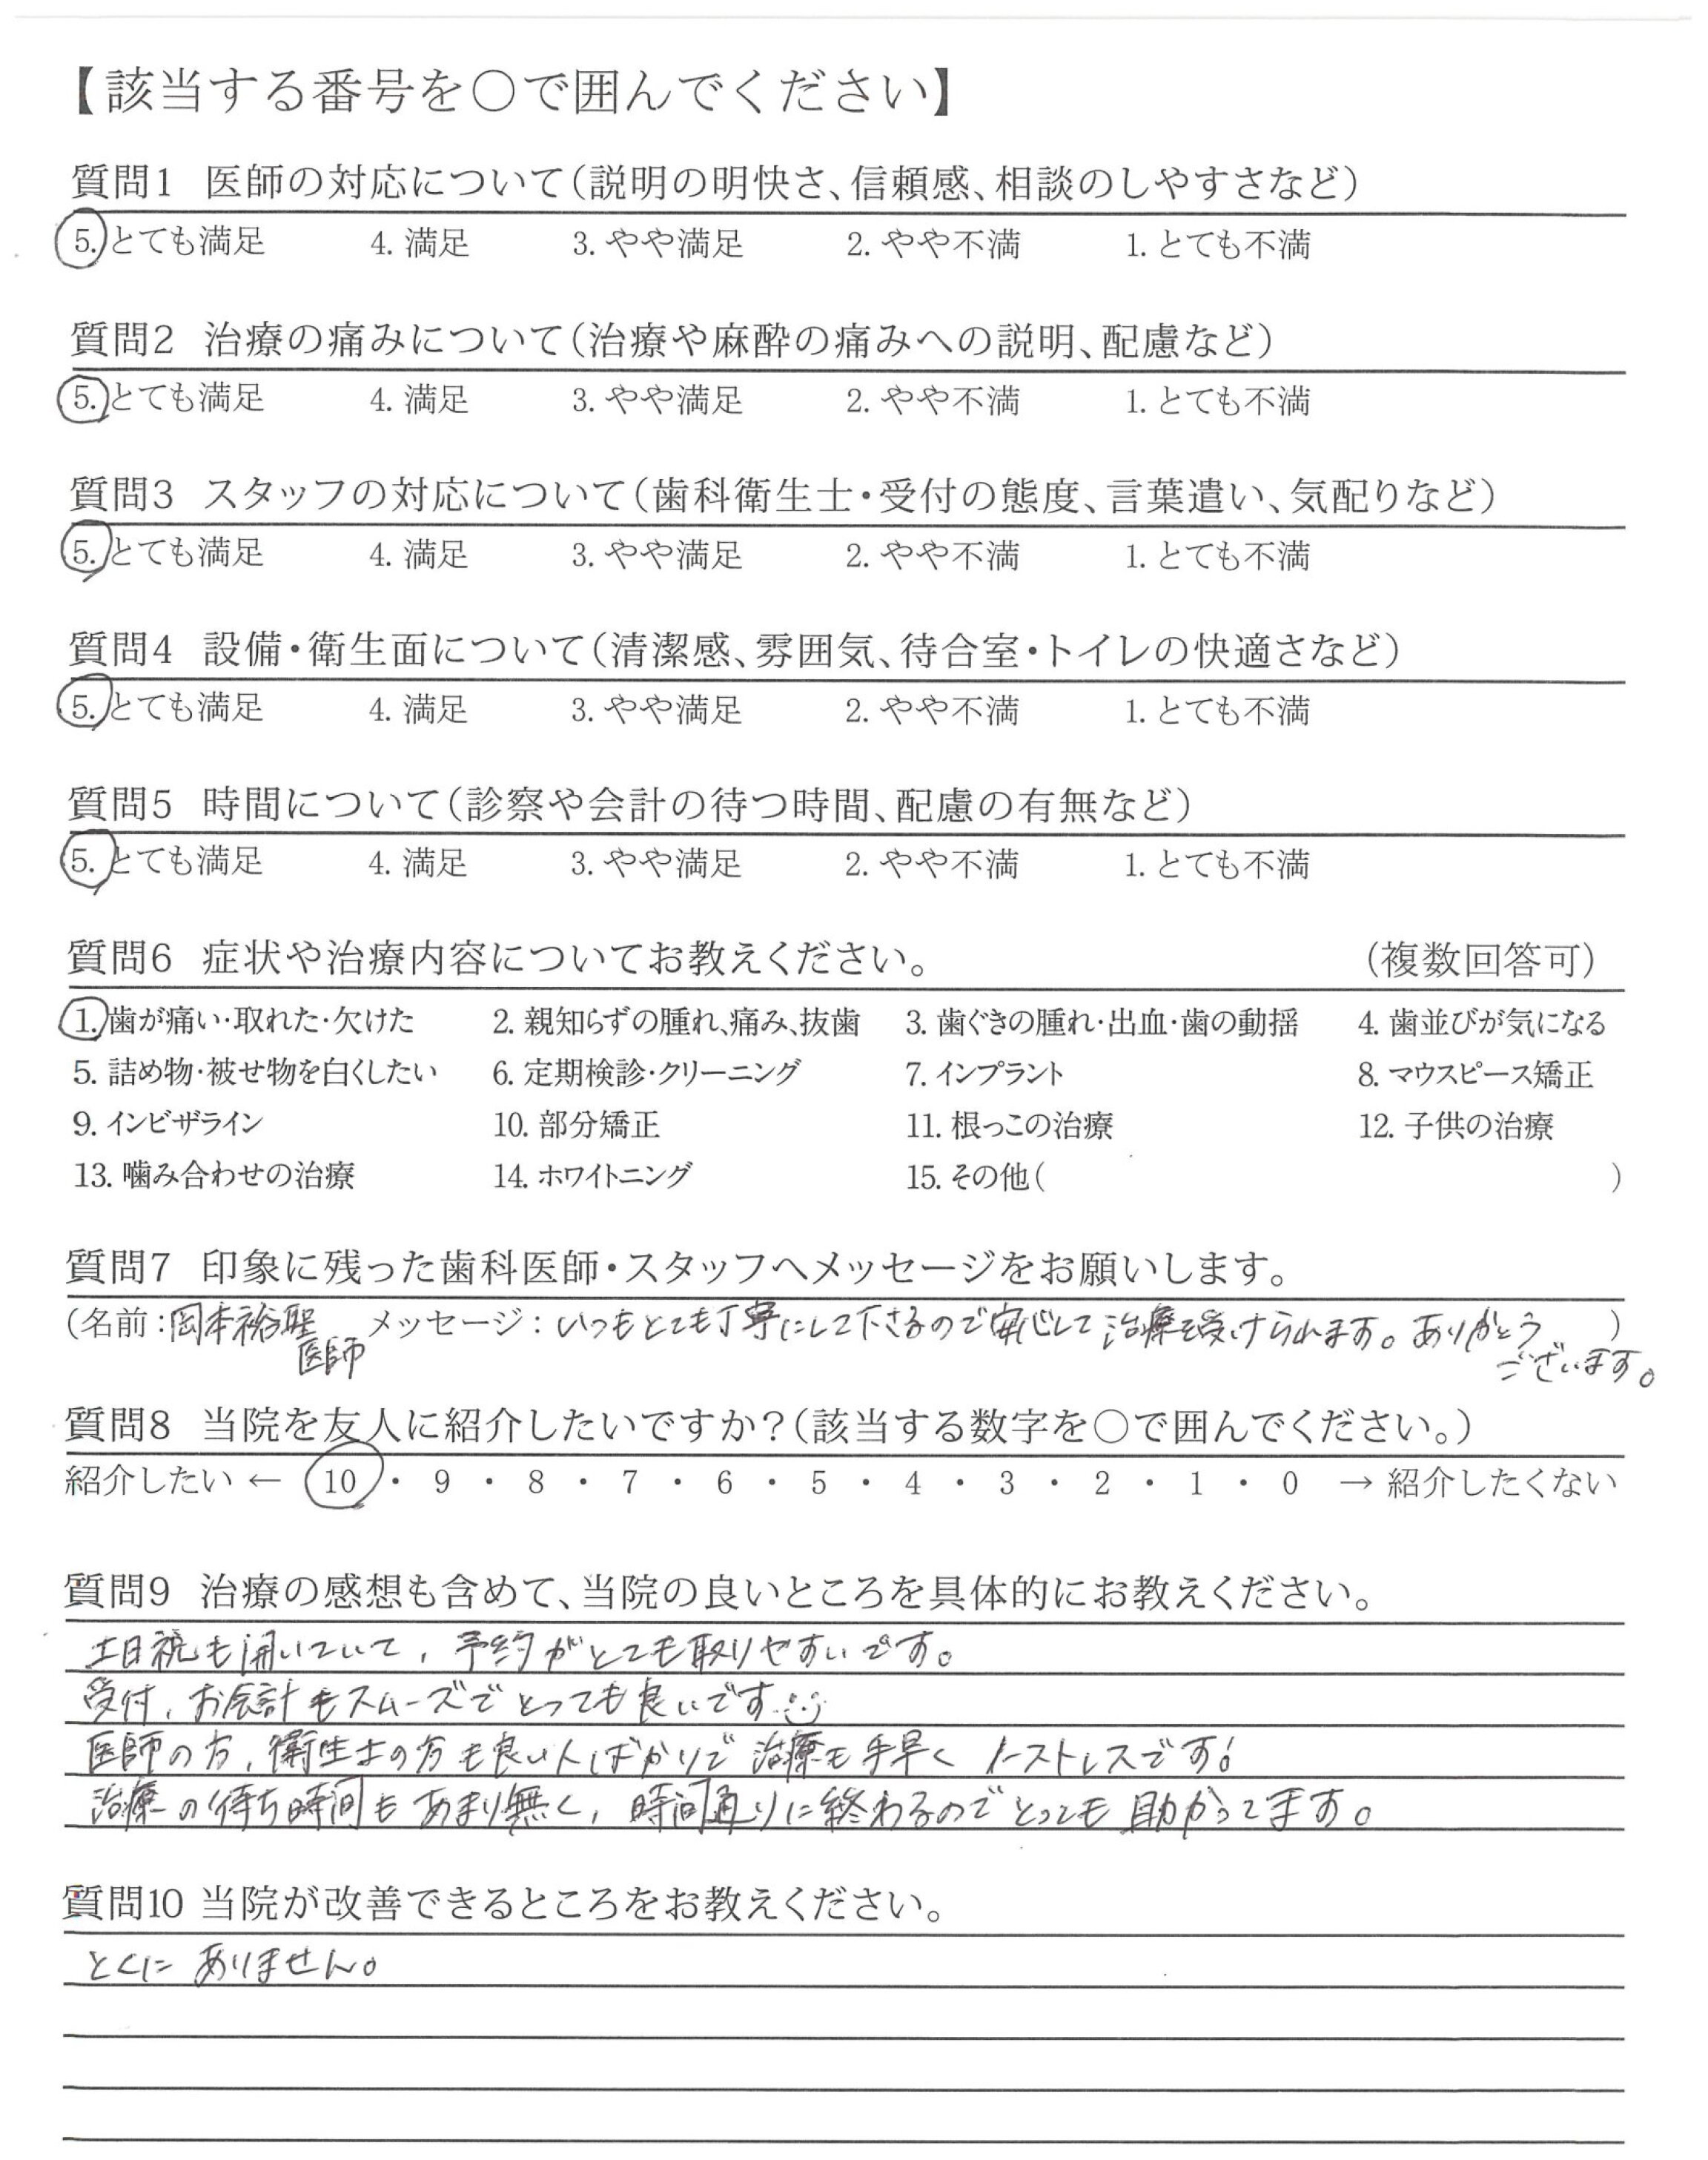 【該当する番号を○で囲んでください】
質問1 医師の対応について(説明の明快さ、信頼感、相談のしやすさなど)
5. とても満足 4. 満足 3. やや満足 2. やや不満 1. とても不満
質問2 治療の痛みについて(治療や麻酔の痛みへの説明、配慮など)
5. とても満足 4. 満足 3. やや満足 2. やや不満 1. とても不満
質問3 スタッフの対応について(歯科衛生士・受付の態度、言葉遣い、気配りなど)
5. とても満足 4. 満足 3. やや満足 2. やや不満 1. とても不満
質問4 設備・衛生面について(清潔感、雰囲気、待合室・トイレの快適さなど)
5. とても満足 4. 満足 3. やや満足 2. やや不満 1. とても不満
質問5 時間について(診察や会計の待つ時間、配慮の有無など)
5. とても満足 4. 満足 3. やや満足 2. やや不満 1. とても不満
質問6 症状や治療内容についてお教えください。 (複数回答可)
1. 歯が痛い・取れた・欠けた 2. 親知らずの腫れ、痛み、抜歯 3. 歯ぐきの腫れ・出血・歯の動揺 4. 歯並びが気になる
5. 詰め物・被せ物を白くしたい 6. 定期検診・クリーニング 7. インプラント 8. マウスピース矯正
9. インビザライン 10. 部分矯正 11. 根っこの治療 12. 子供の治療
13. 噛み合わせの治療 14. ホワイトニング 15. その他( )
質問7 印象に残った歯科医師・スタッフへメッセージをお願いします。
(名前:岡本裕聖 メッセージ:いつもとても丁寧にして下さるので安心して治療を受けられます。ありがとう )
医師 ございます。
質問8 当院を友人に紹介したいですか?(該当する数字を○で囲んでください。)
紹介したい ← 10 ・ 9 ・ 8 ・ 7 ・ 6 ・ 5 ・ 4 ・ 3 ・ 2 ・ 1 ・ 0 → 紹介したくない
質問9 治療の感想も含めて、当院の良いところを具体的にお教えください。
土日祝も開いていて、予約がとても取りやすいです。
受付、お会計もスムーズでとっても良いです
医師の方、衛生士の方も良い人ばかりで治療も手早くノーストレスです!
治療の待ち時間もあまり無く、時間通りに終わるのでとっても助かってます。
質問10 当院が改善できるところをお教えください。
とくにありません。